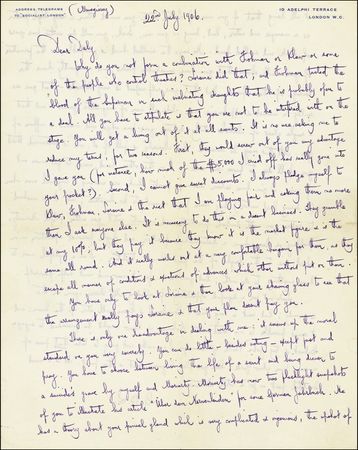 ADDRESS, TELEGRAMS
"SOCIALIST-LONDON" (Managing)
10 ADELPHI TERRACE
LONDON W.C.
22nd July 1906.
Dear Daly
Why do you not form a combination with Frohman or Klaw or some
of the people who control theatres? Loraine did that; and Frohman tasted the
blood of the Superman on such
a deal. All you have to stipulate is that you are not to be interfered with on the
stage. You will get a living out of it at all events. It is no use asking me to
reduce my terms, for two reasons. First, they would even out of you any advantage
I gave you (for instance, how much of the $5,000 I said off has really gone into
your pocket?). Second, I cannot give sweet discounts. I always pledge myself to
Klaw, Frohman, Loraine & the rest that I am playing fair and asking them no more
than I ask anyone else. It is necessary to do this in a decent business. They grumble
at my 10%, but they pay it because they know it is the market figure & is the
same all round. And it really works out at a very comfortable bargain for them, as they
escape all manner of conditions & exactions of advances which other authors put on them.
You have only to look at Loraine & then look at your shaving glass to see that
the arrangement really pays Loraine, & that your plan doesnt pay you.
There is only one disadvantage in dealing with me: it screws up the moral
standard on you very severely. You can do little besides starving - except post and
pray. You have to choose between living the life of a saint and being driven to
a suicide's grave by myself and Moriarty. Moriarty has now two flashlight snapshots
of you to illustrate his article "Über den" for some German Jahrbuch. He
has a theory about your pineal gland which is very complicated & ingenious, the upshot of